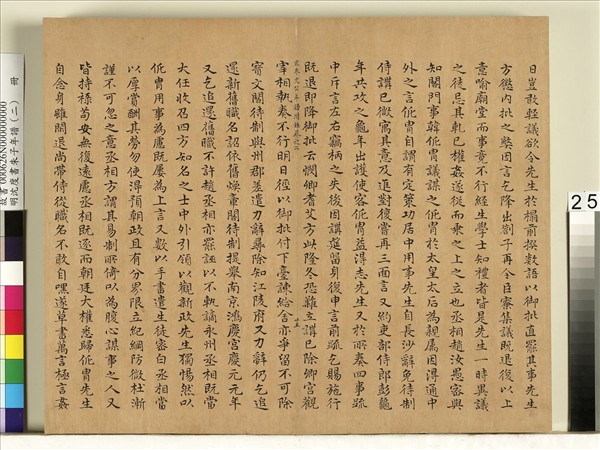 日豈敢輕議欲今先生於榻前撰數語以御批直罷其事先生
方懲內批之弊因言乞降出劄子再令臣寮集議既退復以上
意喻廟堂而事竟不行經生學士知禮者皆是先生一時異議
之徒忌其軋已權姦遂從而乘之上之立也丞相趙汝愚密與
知閤門事韓侂胄議謀之侂胄於太皇太后為親屬因得通中
外之言侂胄自謂有定策功居中用事先生自長沙辭免待制
侍講已微寓其意及進對復嘗再三面言又約吏部侍郎彭龜
年共攻之龜年出護使客侂胄益得志先生又於所奏四事疏
中斥言左右竊柄之失後因講筵留身復申言前疏乞賜施行
既退即降御批云憫卿耆艾方此隆冬恐難立講已除卿宮觀
宰相執奏不行明日徑以御批付下臺諫給舍亦爭留不可除
寶文閣待制與州郡差遣力辭尋除知江陵府又力辭仍乞追
還新舊職名詔依舊煥章閣待制提舉南京鴻慶宮慶元元年
又乞追還舊職不許趙丞相亦罷誣以不軌謫永州丞相既當
大任收召四方知名之士中外引領以觀新政先生獨惕然以
侂胄用事為慮既屢為上言又數以手書遣生徒密白丞相當
以厚賞酬其勞勿使得預朝政且有分界限立紀綱防微杜漸
謹不可忽之意丞相方謂其易制所倚以為腹心謀事之人又
皆持祿苟安無復遠慮丞相既逐而朝廷大權悉歸侂胄先生
自念身雖閒退尚帶侍從職名不敢自嘿遂草書萬言極言姦
故書 000626N000000000
明沈度書朱子年譜(一)
25